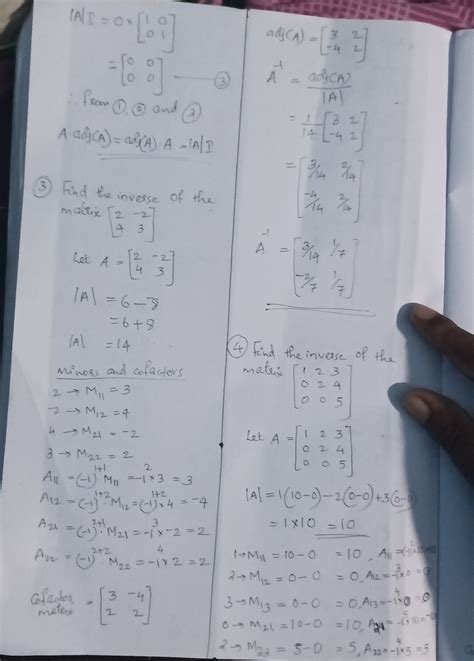 |A|I = 0 × [1 0
0 1]
= [0 0
0 0] — ③
∴ from ①, ② and ③
A adj(A) = adj(A) A = |A| I
③ Find the inverse of the
matrix [2 -2
4 3]
Let A = [2 -2
4 3]
|A| = 6 - -8
= 6+8
|A| = 14
minors and cofactors
2 → M₁₁ = 3
-2 → M₁₂ = 4
4 → M₂₁ = -2
3 → M₂₂ = 2
A₁₁ = (-1)¹⁺¹ M₁₁ = -1² × 3 = 3
A₁₂ = (-1)¹⁺² M₁₂ = (-1)¹⁺² × 4 = -4
A₂₁ = (-1)²⁺¹ M₂₁ = -1³ × -2 = 2
A₂₂ = (-1)²⁺² M₂₂ = -1⁴ × 2 = 2
Cofactor
matrix = [3 -4
2 2]
adj(A) = [3 2
-4 2]
A⁻¹ = adj(A)
|A|
= 1/14 [3 2
-4 2]
= [3/14 2/14
-4/14 2/14]
A⁻¹ = [3/14 1/7
-2/7 1/7]
④ Find the inverse of the
matrix [1 2 3
0 2 4
0 0 5]
Let A = [1 2 3
0 2 4
0 0 5]
|A| = 1(10-0) - 2(0-0) + 3(0-0)
= 1×10 = 10
1 → M₁₁ = 10-0 = 10, A₁₁ =
2 → M₁₂ = 0-0 = 0, A₁₂ = -1³×0 = 0
3 → M₁₃ = 0-0 = 0, A₁₃ = -1⁴×0 = 0
0 → M₂₁ = 10-0 = 10, A₂₁ = -1³×10 = -10
2 → M₂₂ = 5-0 = 5, A₂₂ = -1⁴×5 = 5